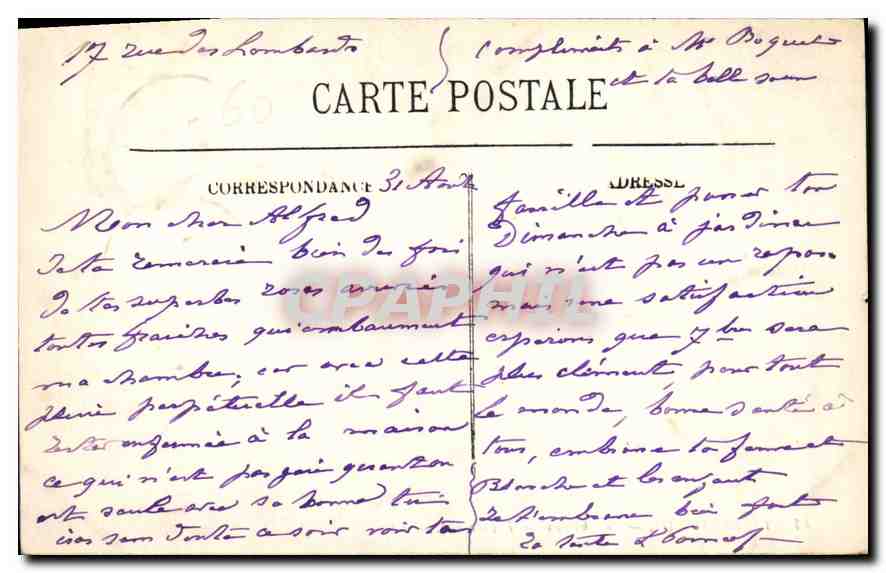 17 rue des Lombards
Compliments à Mr Boquet
et ta belle soeur
CARTE POSTALE
CORRESPONDANCE
31 Aout
ADRESSE
Mon cher Alfred
Je te remercie bien des fois
de tes superbes roses arrivées
toutes fraiches qui embaument
ma chambre, car avec cette
pluie perpétuelle il faut
rester enfermée à la maison
ce qui n'est pas gaie quant on
est seule avec sa bonne tu
iras sans doute ce soir voir ta
famille et passer ton
Dimanche à jardiner
qui n'est pas un repos
mais une satisfaction
esperons que 7bre sera
plus clément, pour tout
le monde, bonne santé à
tous, embrasse ta femme et
Blanche et les enfants
Je t'embrasse bien fort
Ta tante
CPAPHIL